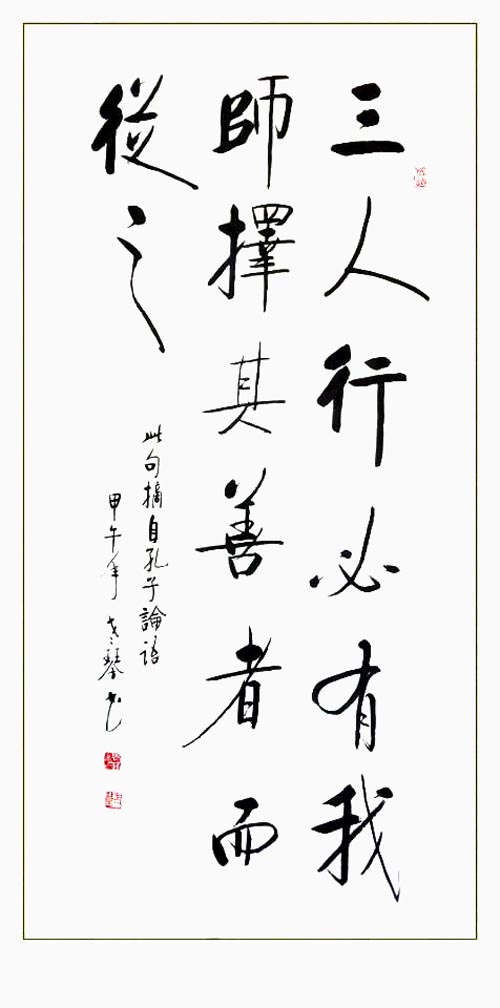 三人行必有我
師擇其善者而
從之
此句摘自孔子論語
甲午年 琴书